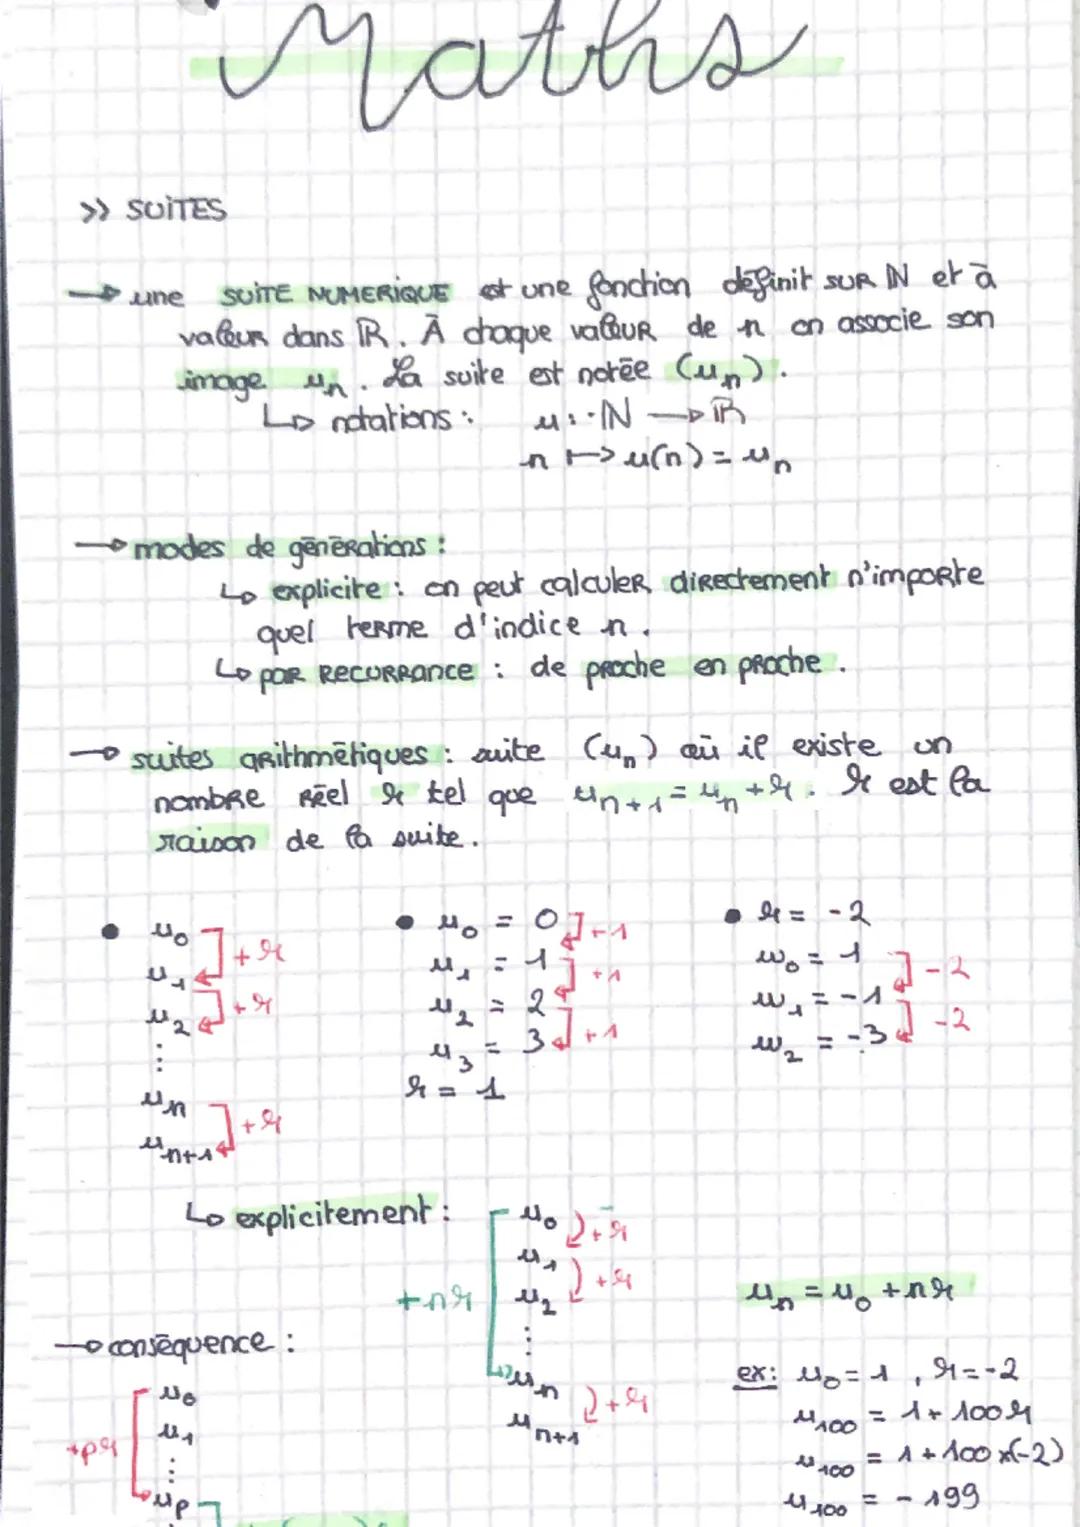 Maths
>> SUITES
→ une SUITE NUMERIQUE est une fonction définit SUR ℕ et à
valeur dans ℝ. À chaque valeur de n on associe son
image uₙ. La suite est notée (uₙ).
↳ notations : u : ℕ → ℝ
n ↦ u(n) = uₙ
→ modes de générations :
↳ explicite : on peut calculer directement n'importe
quel terme d'indice n.
↳ par RECURRANCE : de proche en proche.
→ suites arithmétiques : suite (uₙ) où il existe un
nombre réel r tel que uₙ₊₁ = uₙ + r. r est la
raison de la suite.
• u₀ • u₀ = 0 • r = -2
+r +1
u₁ u₁ = 1 w₀ = 1
+r +1 -2
u₂ u₂ = 2 w₁ = -1
⋮ +1 -2
u₃ = 3 w₂ = -3
uₙ r = 1
+r
uₙ₊₁
↳ explicitement : u₀
+r
u₁
+r
+nr u₂ uₙ = u₀ + nr
→ conséquence : ⋮
u₀ uₙ ex: u₀ = 1, r = -2
+r
u₁ uₙ₊₁ u₁₀₀ = 1 + 100r
+pr ⋮ u₁₀₀ = 1 + 100 × (-2)
uₚ u₁₀₀ = - 199